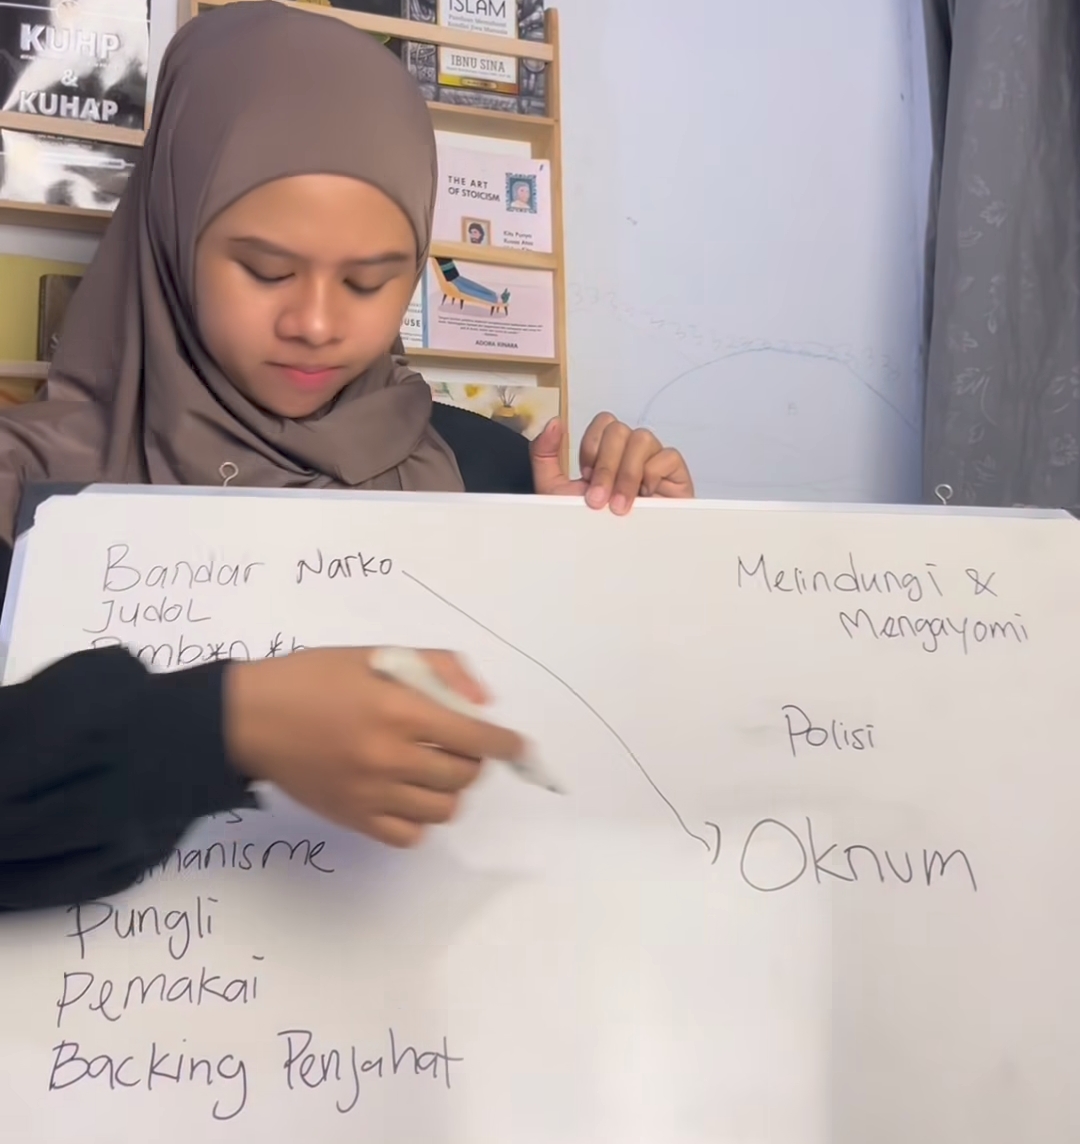 KUHP
&
KUHAP
ISLAM
IBNU SINA
THE ART
OF STOICISM
USE
ADORA KINARA
Bandar Narko
Judol
Melindungi &
Mengayomi
Polisi
Oknum
Pungli
Pemakai
Backing Penjahat